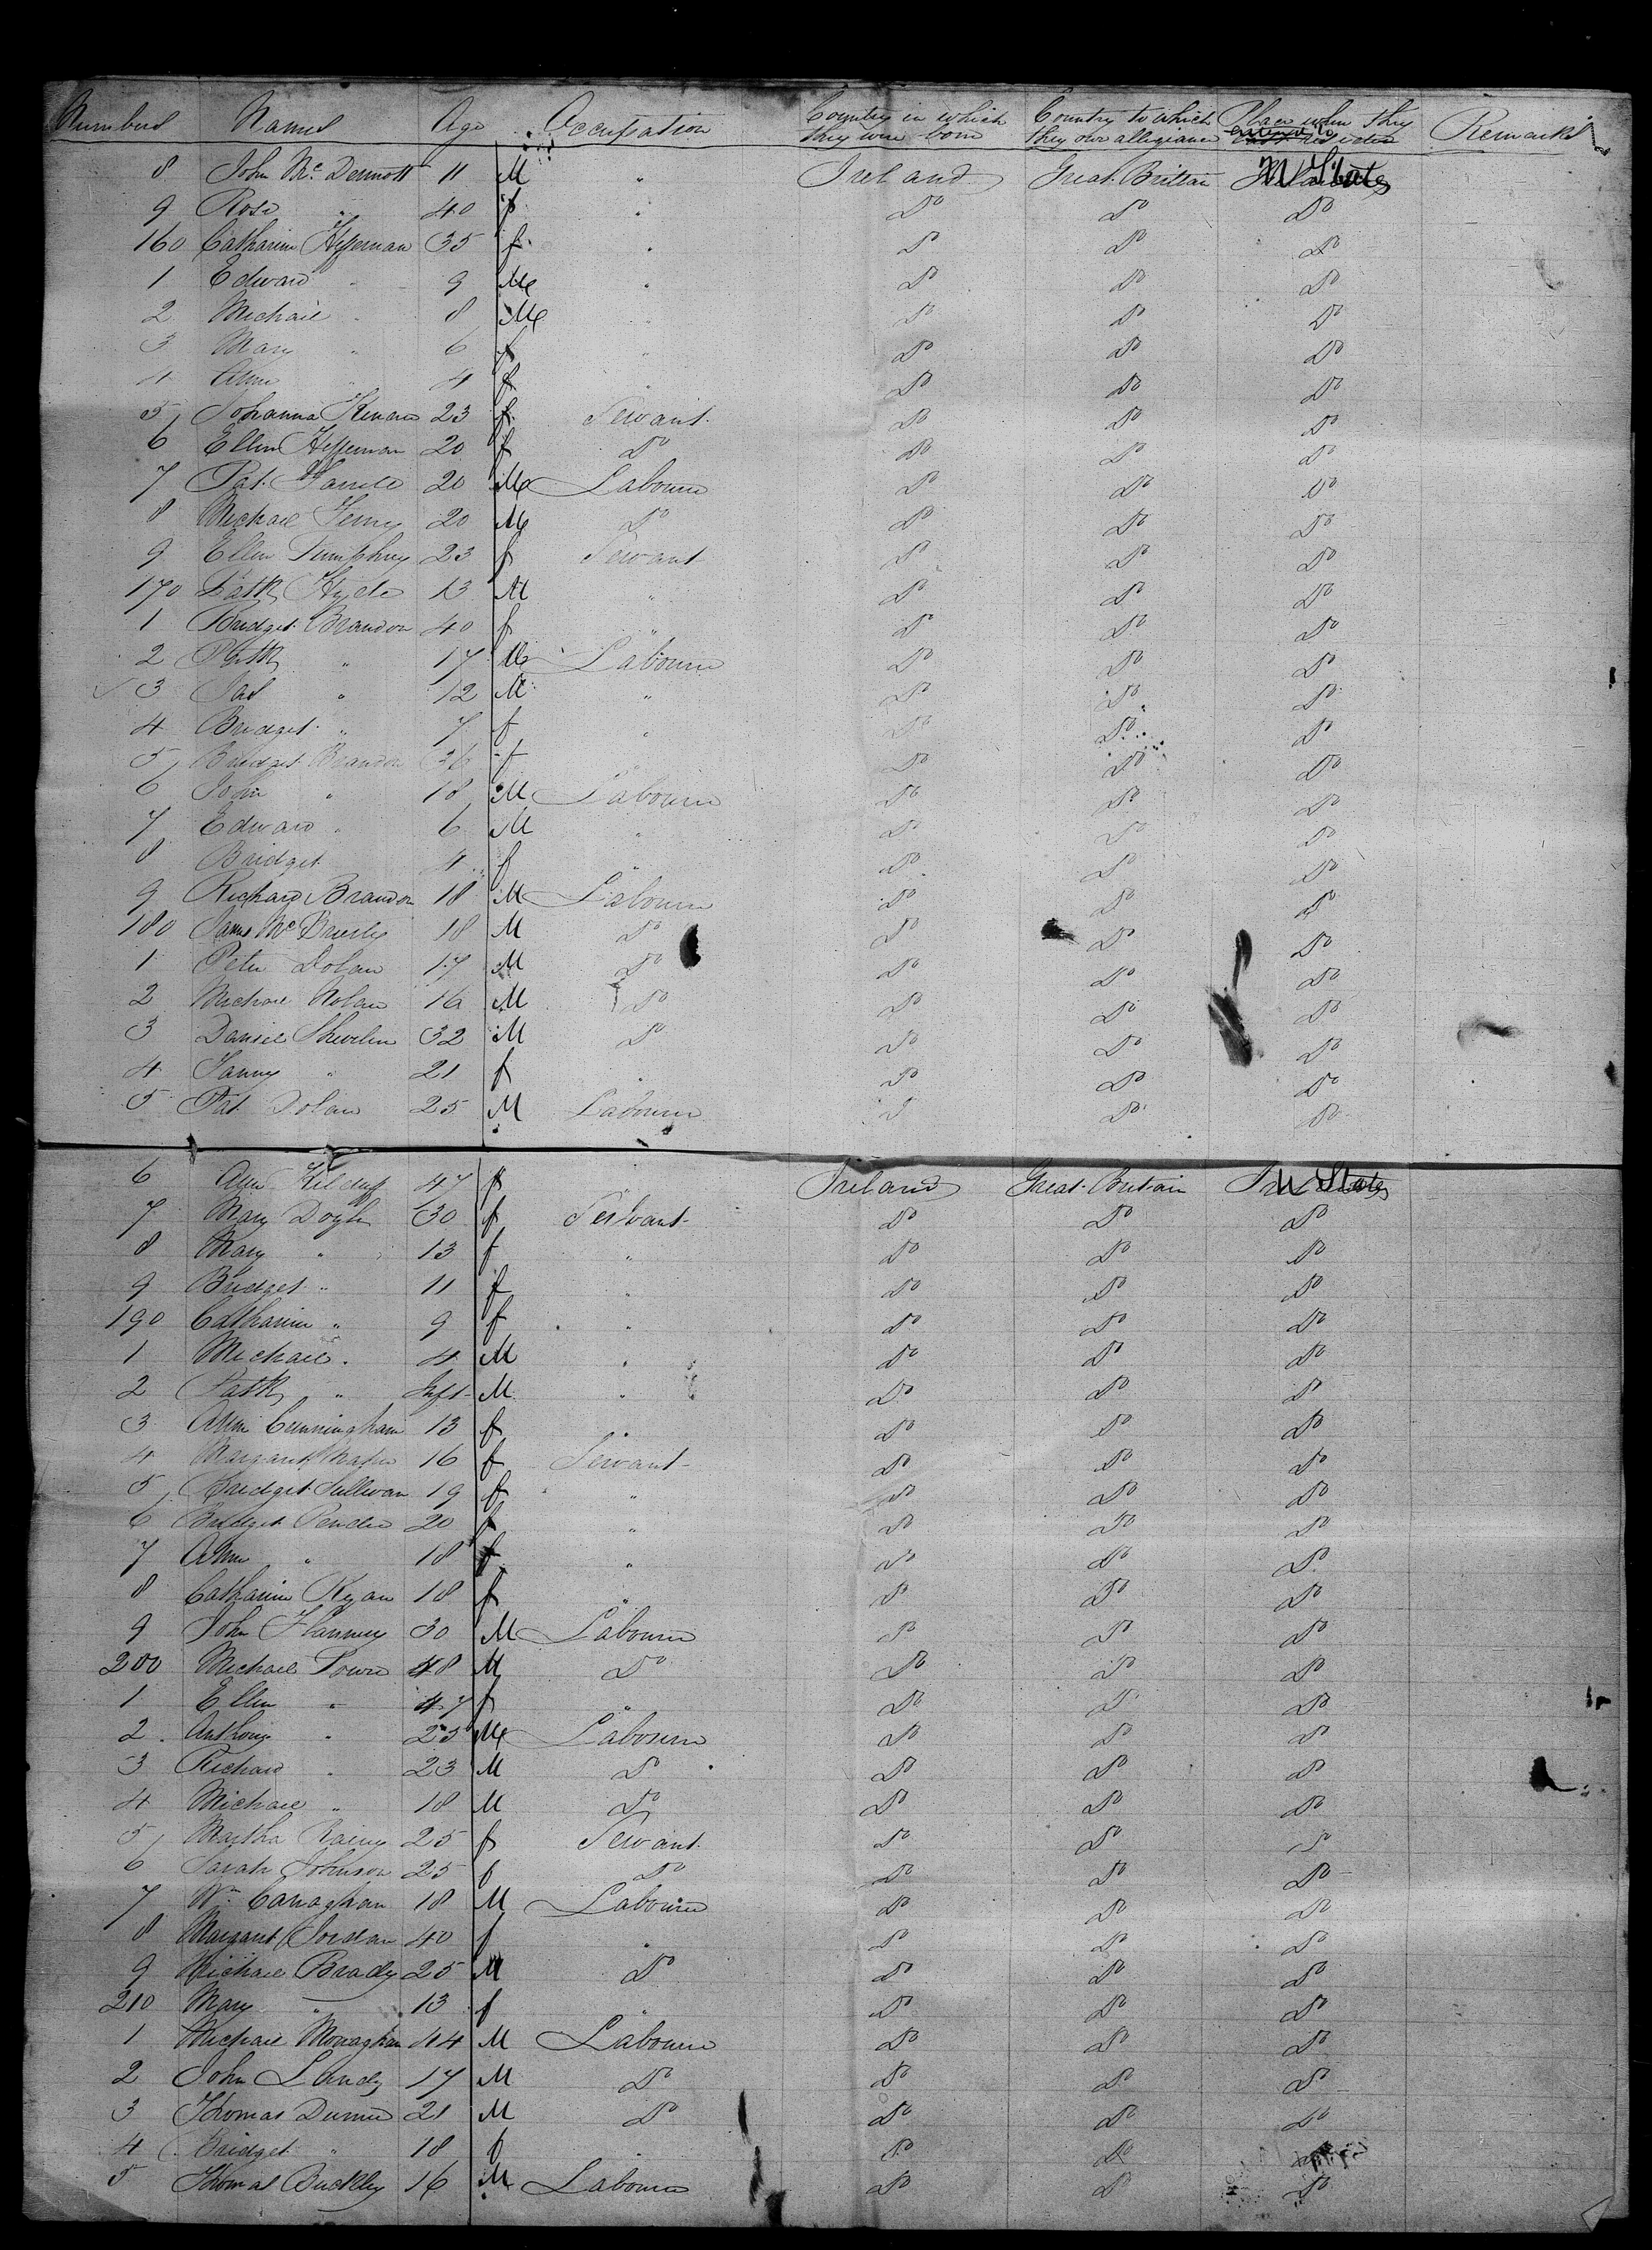 Numbers Names Age Occupation Country in which they were born Country to which they owe allegiance Place where they Remarks
8 John Mc Dermott 11 M " Ireland Great Brittain U States
9 Rose " 40 f " Do Do Do
160 Catharine Heffernan 35 f " Do Do Do
1 Edward " 9 M " Do Do Do
2 Michael " 8 M " Do Do Do
3 Mary " 6 f " Do Do Do
4 Ann " 4 f " Do Do Do
5 Johanna 23 f Servant Do Do Do
6 Ellen Heffernan 20 f Do Do Do Do
7 Pat Farrell 20 M Labourer Do Do Do
8 Michael 20 M Do Do Do Do
9 Ellen 23 f Servant Do Do Do
170 Patk Hyde 13 M " Do Do Do
1 Bridget Brandon 40 f " Do Do Do
2 Patk " 17 M Labourer Do Do Do
3 Jas " 12 M " Do Do Do
4 Bridget " 7 f " Do Do Do
5 Bridget Brandon 36 f " Do Do Do
6 John " 18 M Labourer Do Do Do
7 Edward " 6 M " Do Do Do
8 Bridget 4 f " Do Do Do
9 Richard Brandon 18 M Labourer Do Do Do
180 James Mc 18 M Do Do Do Do
1 Peter Dolan 17 M Do Do Do Do
2 Michael Nolan 16 M Do Do Do Do
3 Daniel Shevlin 32 M Do Do Do Do
4 Fanny " 21 f " Do Do Do
5 Pat Dolan 25 M Labourer Do Do Do
6 Ann Kilduff 47 f " Ireland Great Britain U States
7 Mary Doyle 30 f Servant Do Do Do
8 Mary " 13 f " Do Do Do
9 Bridget " 11 f " Do Do Do
190 Catharine " 9 f " Do Do Do
1 Michael " 4 M " Do Do Do
2 Patk " Inft M " Do Do Do
3 Ann Cunningham 13 f " Do Do Do
4 Margaret 16 f Servant Do Do Do
5 Bridget Sullivan 19 f " Do Do Do
6 Bridget Pender 20 f " Do Do Do
7 Ann " 18 f " Do Do Do
8 Catharine Ryan 18 f " Do Do Do
9 John Flannery 30 M Labourer Do Do Do
200 Michael 48 M Do Do Do Do
1 Ellen " 47 f " Do Do Do
2 Anthony " 25 M Labourer Do Do Do
3 Richard " 23 M Do Do Do Do
4 Michael " 18 M Do Do Do Do
5 Martha 25 f Servant Do Do Do
6 Sarah Johnson 25 f Do Do Do Do
7 Wm Canaghan 18 M Labourer Do Do Do
8 Margaret Jordan 40 f " Do Do Do
9 Michael Brady 25 M Do Do Do Do
210 Mary " 13 f " Do Do Do
1 Michael Monaghan 44 M Labourer Do Do Do
2 John Landy 17 M Do Do Do Do
3 Thomas 21 M Do Do Do Do
4 Bridget " 18 f " Do Do
5 Thomas Buckley 16 M Labourer Do Do Do